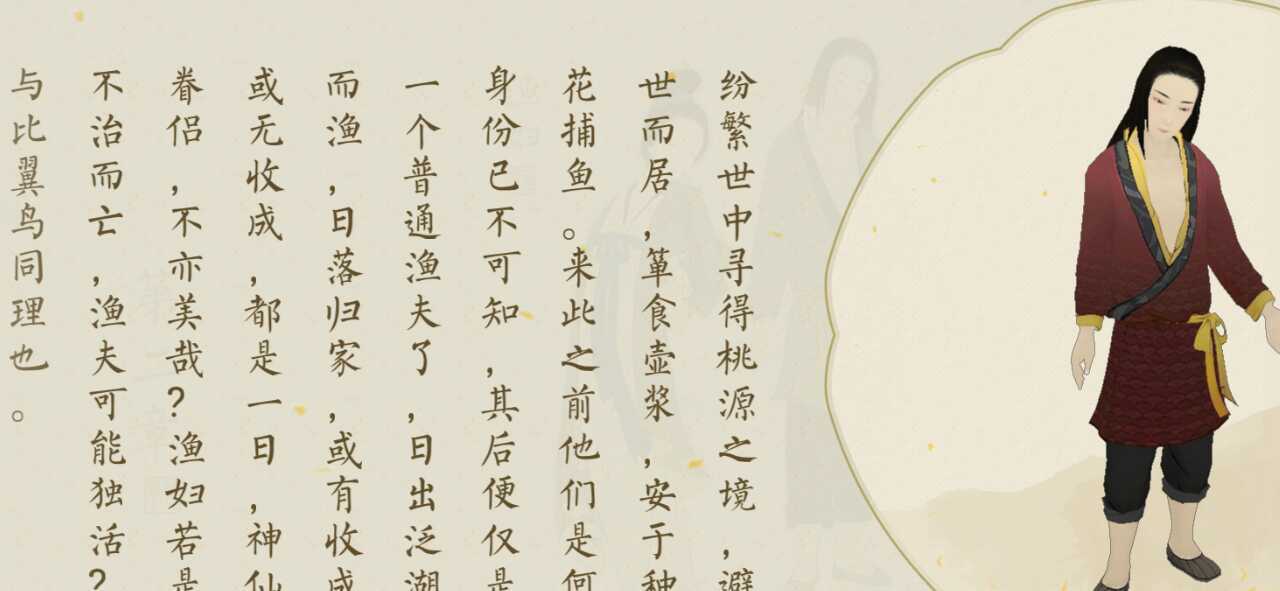 纷繁世中寻得桃源之境，避
世而居，箪食壶浆，安于种
花捕鱼。来此之前他们是何
身份已不可知，其后便仅是
一个普通渔夫了，日出泛湖
而渔，日落归家，或有收成
或无收成，都是一日，神仙
眷侣，不亦美哉？渔妇若是
不治而亡，渔夫可能独活？
与比翼鸟同理也。
第二章